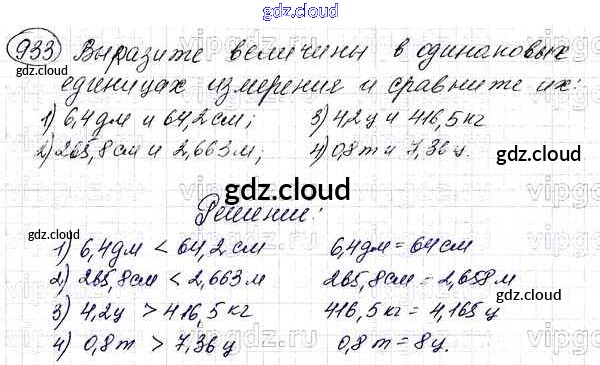 gdz.cloud
933 Выразите величины в одинаковых
gdz.cloud
единицах измерения и сравните их:
1) 6,4дм и 64,2см; 3) 4,2ц и 416,5кг
2) 265,8см и 2,663м; 4) 0,8т и 7,36ц.
gdz.cloud
gdz.cloud
gdz.cloud
Решение:
gdz.cloud
1) 6,4дм < 64,2см 6,4дм = 64см
2) 265,8см < 2,663м 265,8см = 2,658м
gdz.cloud
gdz.cloud
3) 4,2ц > 416,5кг 416,5кг = 4,165ц
4) 0,8т > 7,36ц 0,8т = 8ц.
gdz.cloud